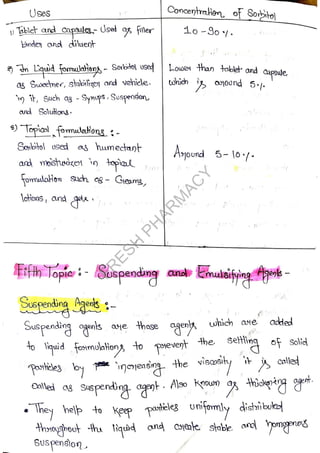 Uses
Concentration of Sorbitol
1) Tablet and capsules - Used as filler
binder and diluent
20-90%.
2) In Liquid formulations - Sorbitol used
as Sweetner, stabilizer and vehicle.
in it, such as - Syrups, Suspension,
and Solutions.
Lower than tablet and capsule
which is around 5%.
3) Topical formulations :-
Sorbitol used as humectant
and moisturizer in topical
formulation such as - Creams,
lotions, and gels.
Around 5-10%.
RESH PHARMACY
Fifth Topic :- Suspending and Emulsifying Agents -
Suspending Agents :-
Suspending agents are those agents which are added
to liquid formulations to prevent the settling of solid
particles by increasing the viscosity it is called
called as suspending agent. Also known as thickening agent.
• They help to keep particles uniformly distributed
throughout the liquid and create stable and homogenous
suspension.